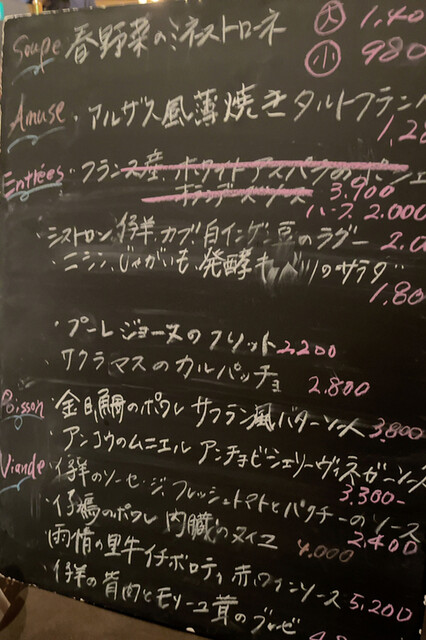 Soupe 春野菜のミネストローネ 大 1,40
小 980
Amuse ・アルザス風薄焼きタルトフラン
1,20
Entrées ・フランス産 ホワイトアスパラのポシェ
オランデーズソース 3,900
ハーフ 2,000
・シストロン仔羊、カブ、白インゲン豆のラグー 2,0
・ニシン、じゃがいも、発酵キャベツのサラダ
1,80
・プーレジョーヌのフリット 2200
・サクラマスのカルパッチョ 2,800
Poisson ・金目鯛のポワレ サフラン風バターソース 3,800
・アンコウのムニエル アンチョビシェリーヴィネガーソース
3,300-
Viande ・仔羊のソーセージ、フレッシュトマトとパクチーのソース
2,400
・仔鳩のポワレ 内臓のソース 4,000
・ 里牛イチボロティ 赤ワインソース 5,200
・仔羊の背肉とモリーユ茸の